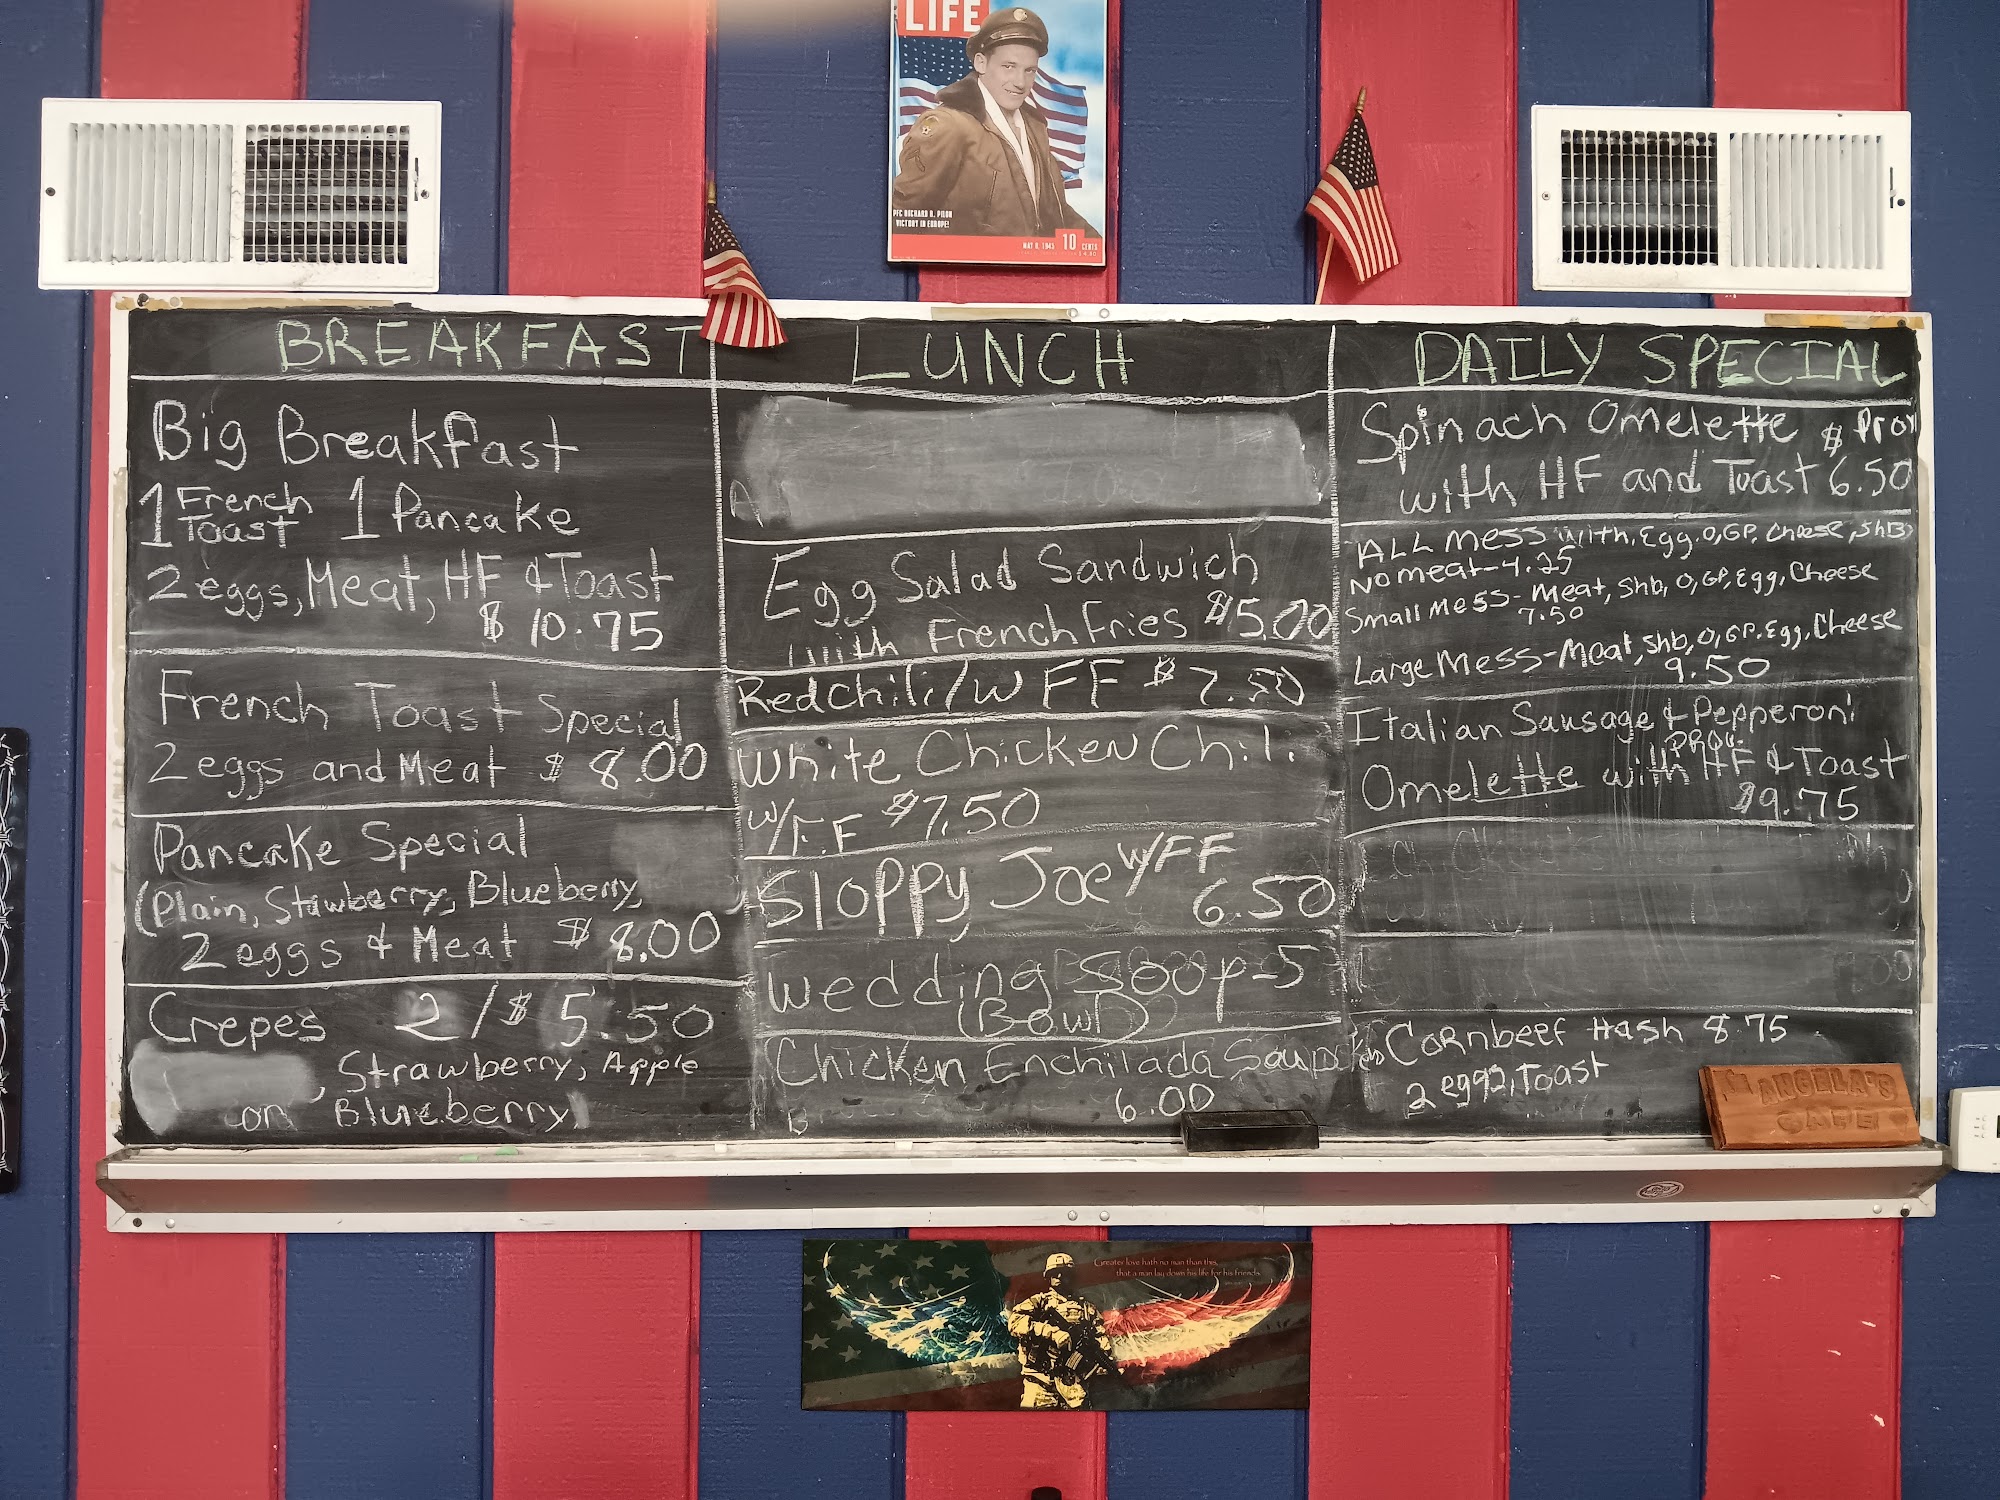 LIFE
PFC RICHARD R. PILON
VICTORY IN EUROPE!
MAY 8, 1945 10 CENTS
BREAKFAST
Big Breakfast
1 French Toast 1 Pancake
2 eggs, Meat, HF & Toast
$ 10.75
French Toast Special
2 eggs and Meat $ 8.00
Pancake Special
(Plain, Stawberry, Blueberry,
2 eggs & Meat $ 8.00
Crepes 2/$ 5.50
, Strawberry, Apple
or Blueberry
LUNCH
Egg Salad Sandwich
with French Fries $5.00
Red chili/w FF $ 7.50
White Chicken Chili
w/F.F $7.50
Sloppy Joe w/FF
6.50
Wedding Soup-5
(Bowl)
Chicken Enchilada Soup
6.00
DAILY SPECIAL
Spinach Omelette $ Prov
with HF and Toast 6.50
ALL Mess with, Egg, O, GP, Cheese, ShB
No meat-4.25
Small Mess- Meat, Shb, O, GP, Egg, Cheese
7.50
Large Mess-Meat, Shb, O, GP, Egg, Cheese
9.50
Italian Sausage & Pepperoni
Prov.
Omelette with HF & Toast
$9.75
Cornbeef Hash 8.75
2 eggs, Toast
ANGELA'S
CAFE
Greater love hath no man than this,
that a man lay down his life for his friends.